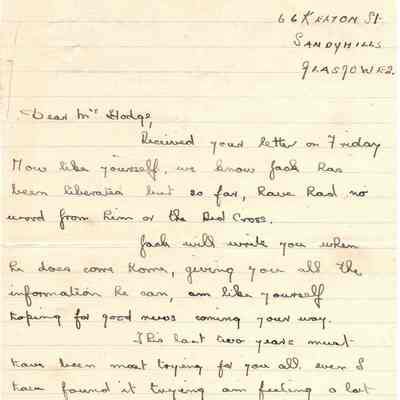 66 Kelton St.
Sandyhills
Glasgow E2.
Dear Mrs Hodge,
Received your letter on Friday
Now like yourself, we know Jack has
been liberated but so far, have had no
word from him or the Red Cross.
Jack will write you when
he does come home, giving you all the
information he can, am like yourself
hoping for good news coming your way.
This last two years must
have been most trying for you all. even I
have found it trying am feeling a lot